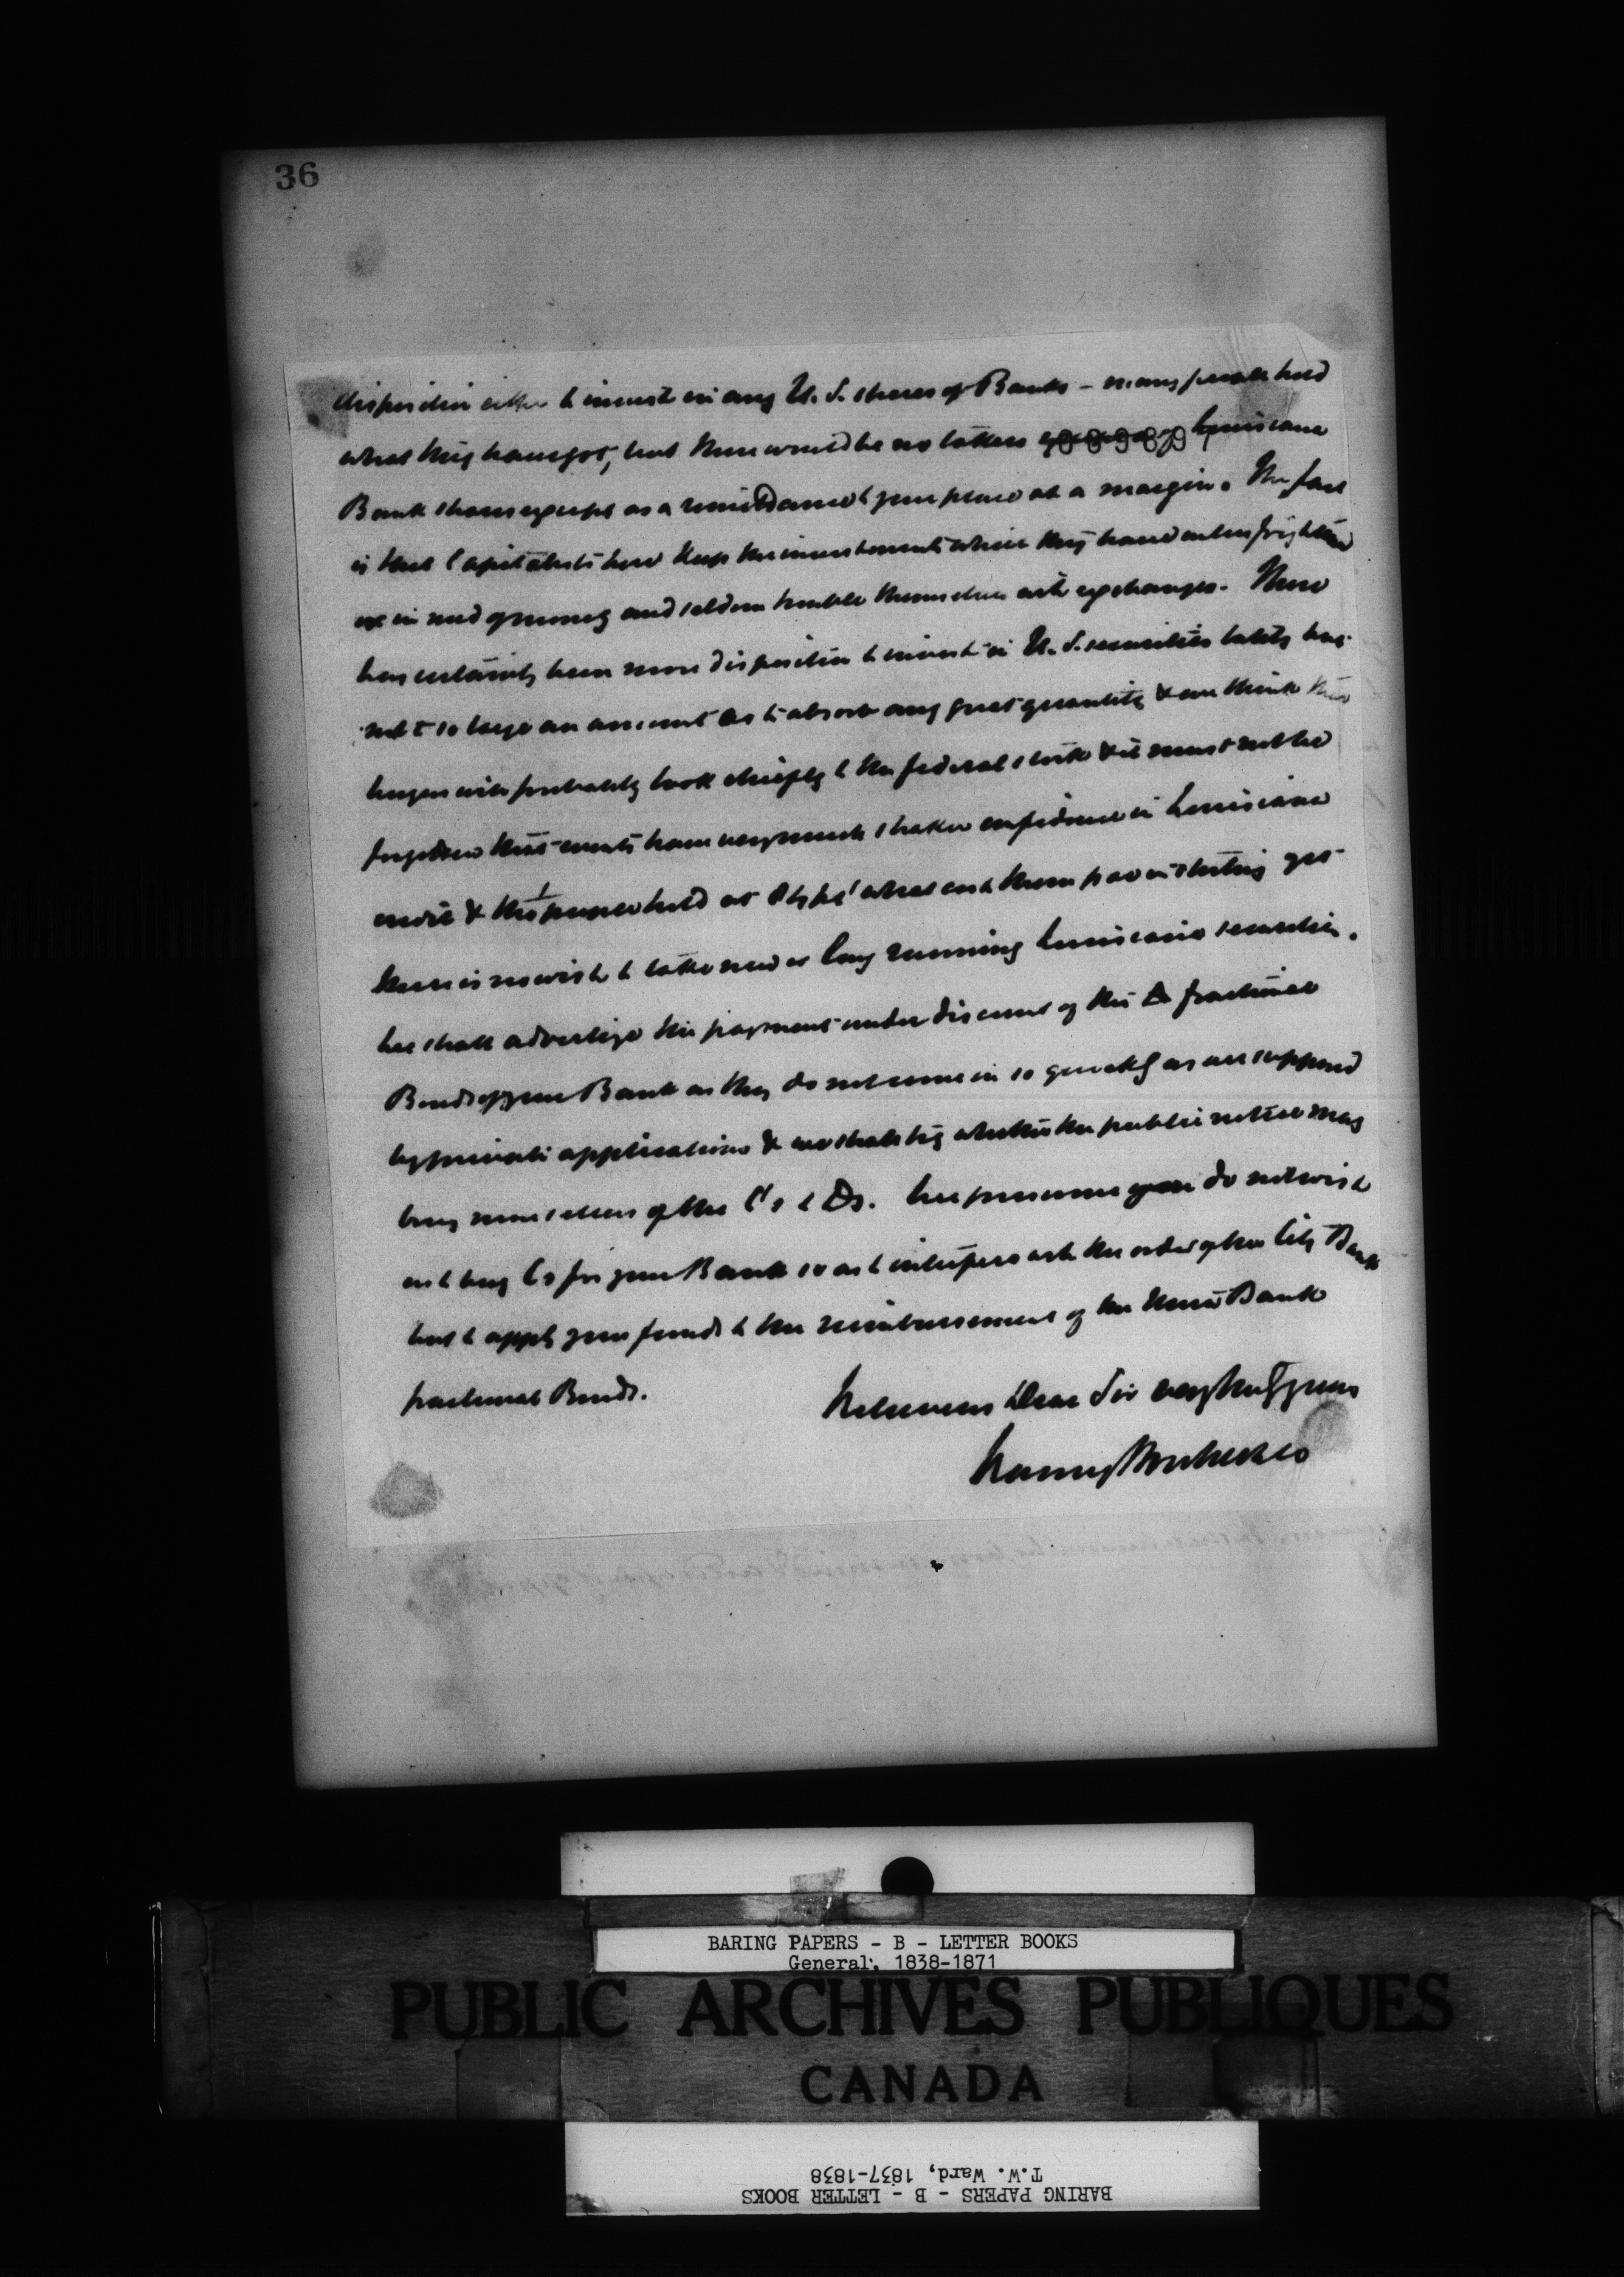 36
disposition either to invest in any U. S. shares of Banks – many people hold
what they have got, but there would be no takers of Louisiana
Bank shares except as a remittance to your place at a margin. The fact
is that Capitalists here keep the investments which they have unless frightened
or in need of money and seldom trouble themselves with exchanges. There
has certainly been more disposition to invest in U. S. securities lately but
not to so large an amount as to absorb any great quantity & we think the
buyers will probably look chiefly to the federal stock & it must not be
forgotten that events have very much shaken confidence in Louisiana
credit & tho' persons hold at what cost them par in sterling yet
there is no wish to take new or long running Louisiana securities.
We shall advertize the payment under discount of the fractional
Bonds of your Bank as they do not come in so quickly as we supposed
by private applications & we shall try whether the public notice may
bring some sellers of the C's & Ds. We presume you do not wish
us to buy Cs for your Bank so as to interfere with the order of the City Bank
but to apply your funds to the reimbursement of the Bank
fractional Bonds.
We remain Dear Sir very truly yours
Baring Brothers & Co
BARING PAPERS - B - LETTER BOOKS
General, 1838-1871
PUBLIC ARCHIVES PUBLIQUES
CANADA
T.W. Ward, 1837-1838
BARING PAPERS - B - LETTER BOOKS